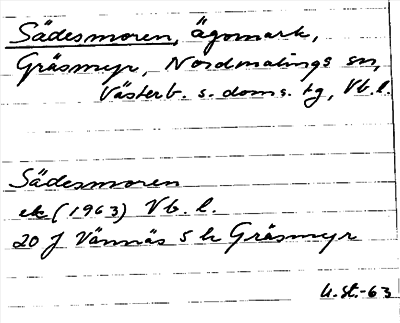 Sädesmoren, ägomark,
Gräsmyr, Nordmalings sn,
Västerb. s. doms. tg, Vb.l.
Sädesmoren
ek (1963) Vb. l.
20 J Vännäs 5 h Gräsmyr
U.St.-63